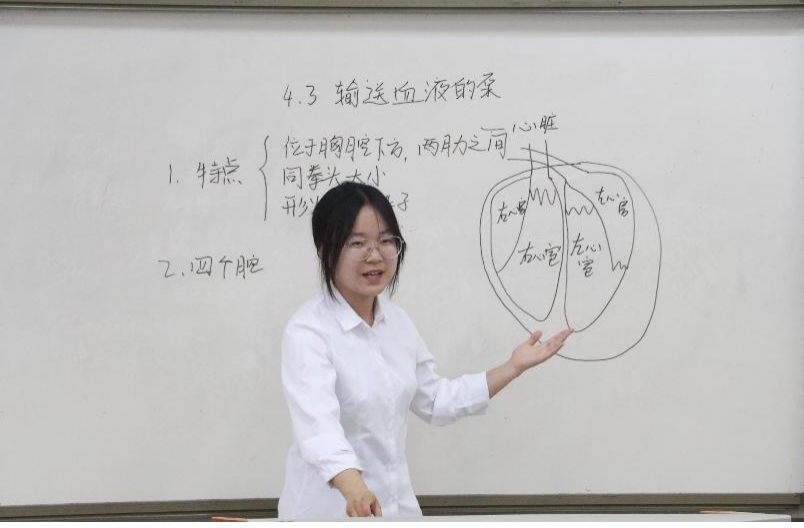 4.3 输送血液的泵
1. 特点
位于胸腔下方, 两肋之间
同拳头大小
形
子
2. 四个腔
心脏
右心房
左心房
右心室
左心
室